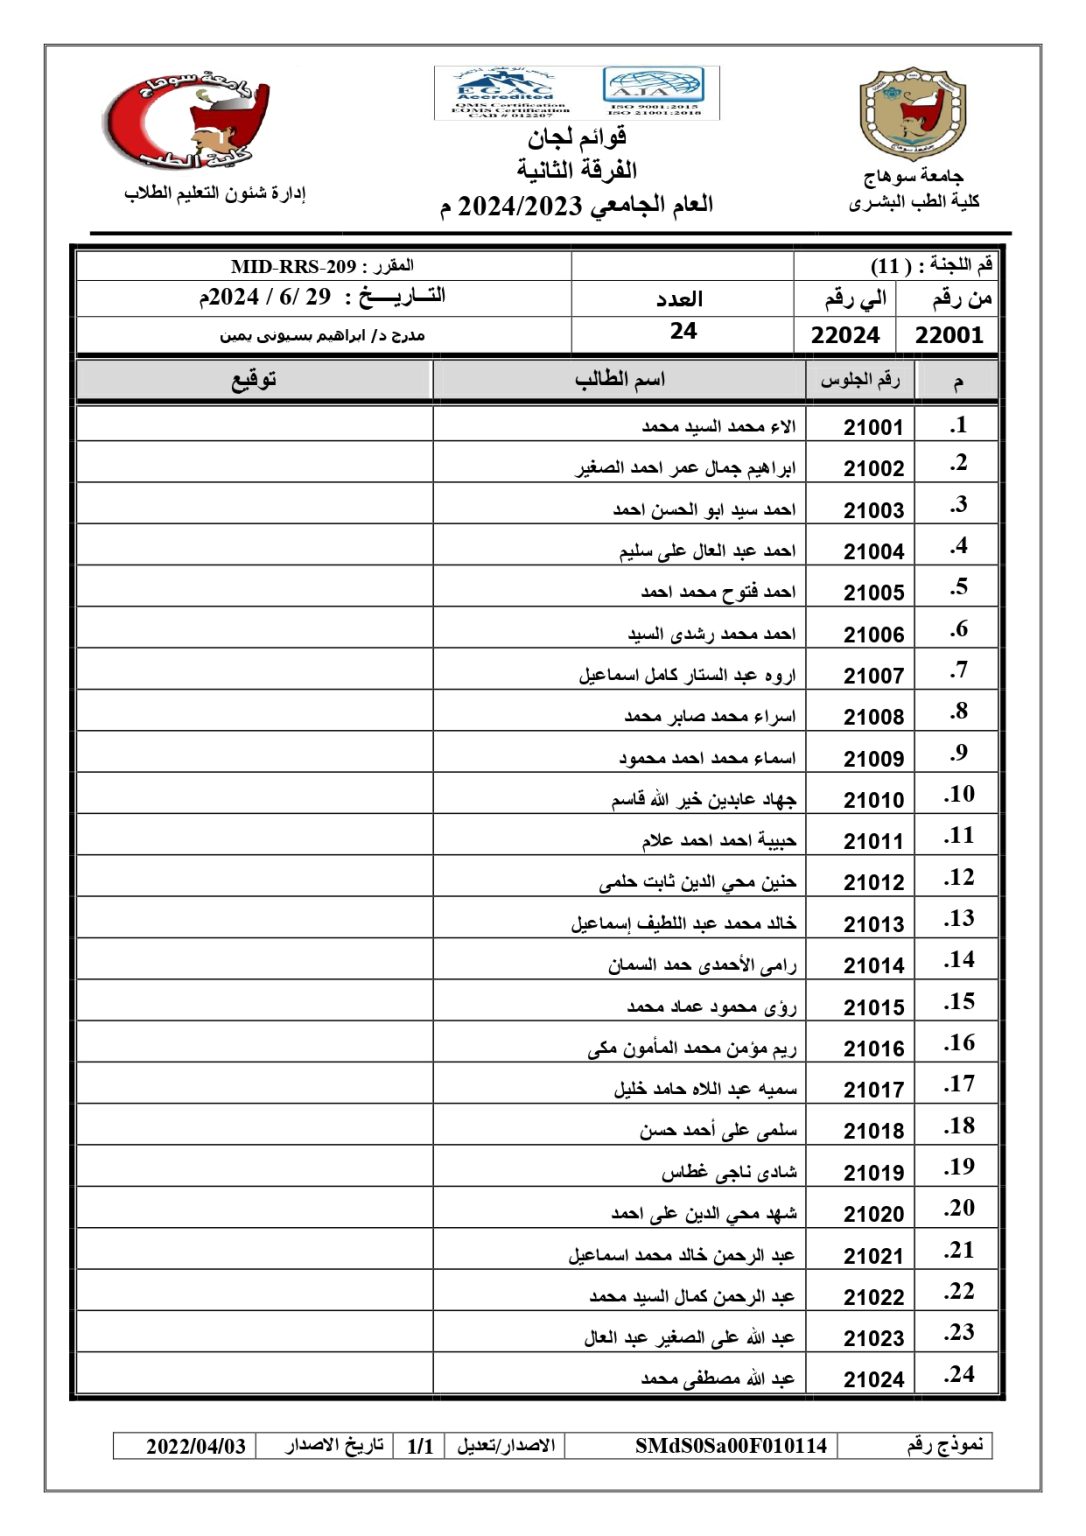 جامعة سوهاج
كلية الطب
إدارة شئون التعليم الطلاب
EGAC
Accredited
QMS Certification
EOMS Certification
CAB # 012207
AJA
ISO 9001:2015
ISO 21001:2018
قوائم لجان
الفرقة الثانية
العام الجامعي 2024/2023 م
جامعة سوهاج
جامعة سوهاج
كلية الطب البشرى
قم اللجنة : ( 11) المقرر : MID-RRS-209
من رقم الي رقم العدد التــاريـــخ : 29 /6 / 2024م
22001 22024 24 مدرج د/ ابراهيم بسيونى يمين
م رقم الجلوس اسم الطالب توقيع
1. 21001 الاء محمد السيد محمد
2. 21002 ابراهيم جمال عمر احمد الصغير
3. 21003 احمد سيد ابو الحسن احمد
4. 21004 احمد عبد العال على سليم
5. 21005 احمد فتوح محمد احمد
6. 21006 احمد محمد رشدى السيد
7. 21007 اروه عبد الستار كامل اسماعيل
8. 21008 اسراء محمد صابر محمد
9. 21009 اسماء محمد احمد محمود
10. 21010 جهاد عابدين خير الله قاسم
11. 21011 حبيبة احمد احمد علام
12. 21012 حنين محي الدين ثابت حلمى
13. 21013 خالد محمد عبد اللطيف إسماعيل
14. 21014 رامى الأحمدى حمد السمان
15. 21015 رؤى محمود عماد محمد
16. 21016 ريم مؤمن محمد المأمون مكى
17. 21017 سميه عبد اللاه حامد خليل
18. 21018 سلمى على أحمد حسن
19. 21019 شادى ناجى غطاس
20. 21020 شهد محي الدين على احمد
21. 21021 عبد الرحمن خالد محمد اسماعيل
22. 21022 عبد الرحمن كمال السيد محمد
23. 21023 عبد الله على الصغير عبد العال
24. 21024 عبد الله مصطفى محمد
نموذج رقم SMdS0Sa00F010114 الاصدار/تعديل 1/1 تاريخ الاصدار 2022/04/03